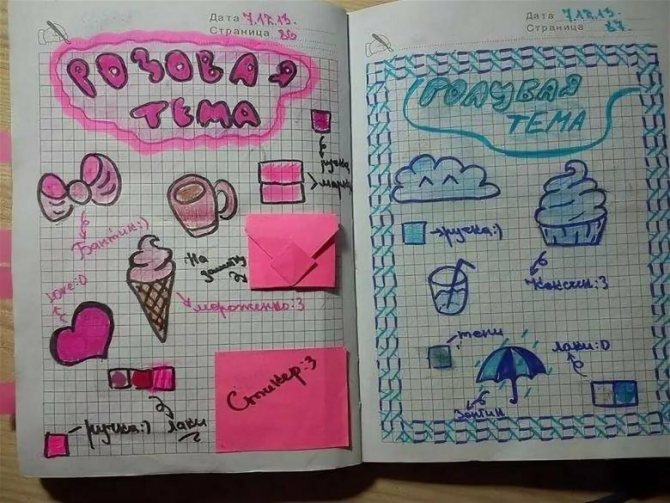 Дата 7.12.13.
Страница 86.
РОЗОВАЯ
ТЕМА
ручка
Бантик:)
На
мороженко:3
Стикер:3
ручка:)
лаки
Дата 7.12.13.
Страница 87.
ГОЛУБАЯ
ТЕМА
ручка:)
Кексик:3
тени
лаки:О
Зонтик